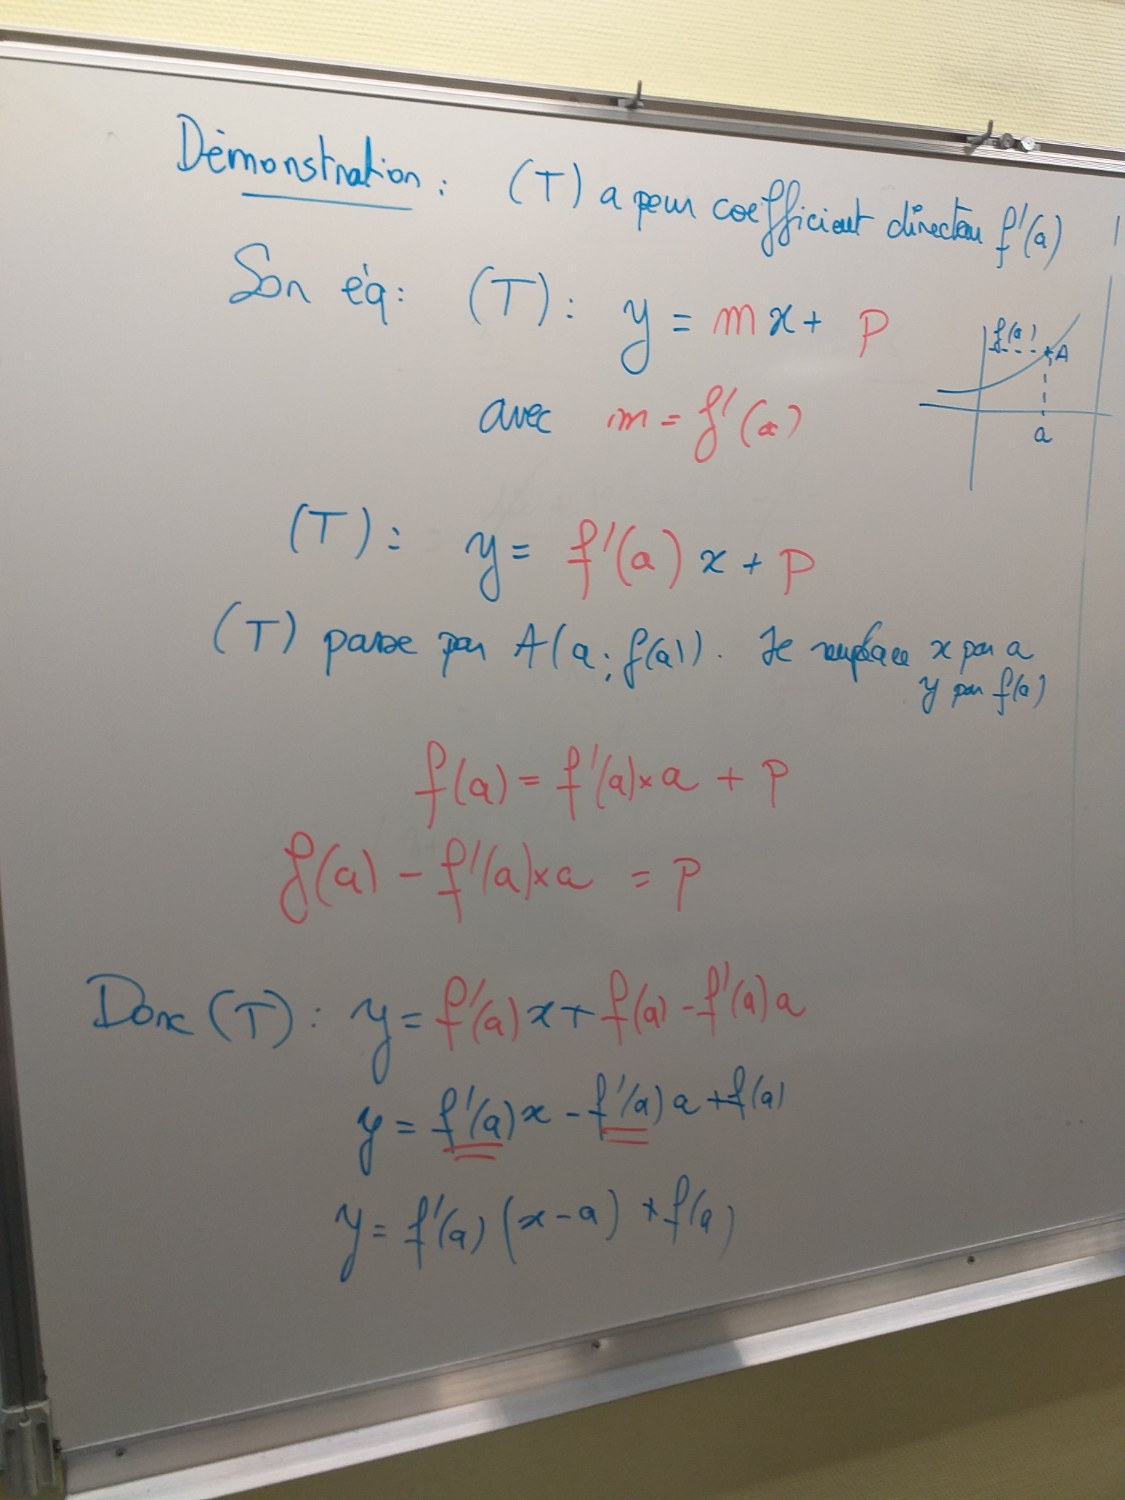 Démonstration : (T) a pour coefficient directeur f'(a)
Son éq : (T) : y = mx + p
avec m = f'(a)
f(a) A
a
(T) : y = f'(a) x + p
(T) passe par A(a ; f(a)). Je remplace x par a
y par f(a)
f(a) = f'(a) × a + p
f(a) - f'(a) × a = p
Donc (T) : y = f'(a) x + f(a) - f'(a) a
y = f'(a) x - f'(a) a + f(a)
y = f'(a) (x - a) + f(a)